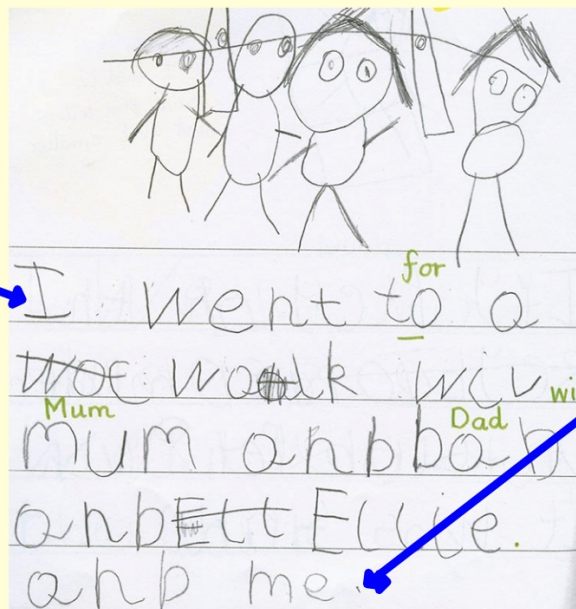 for
I went to a
woc wolk wiv wi
Mum Dad
mum anb bab
anb Ell Ellie.
anb me.